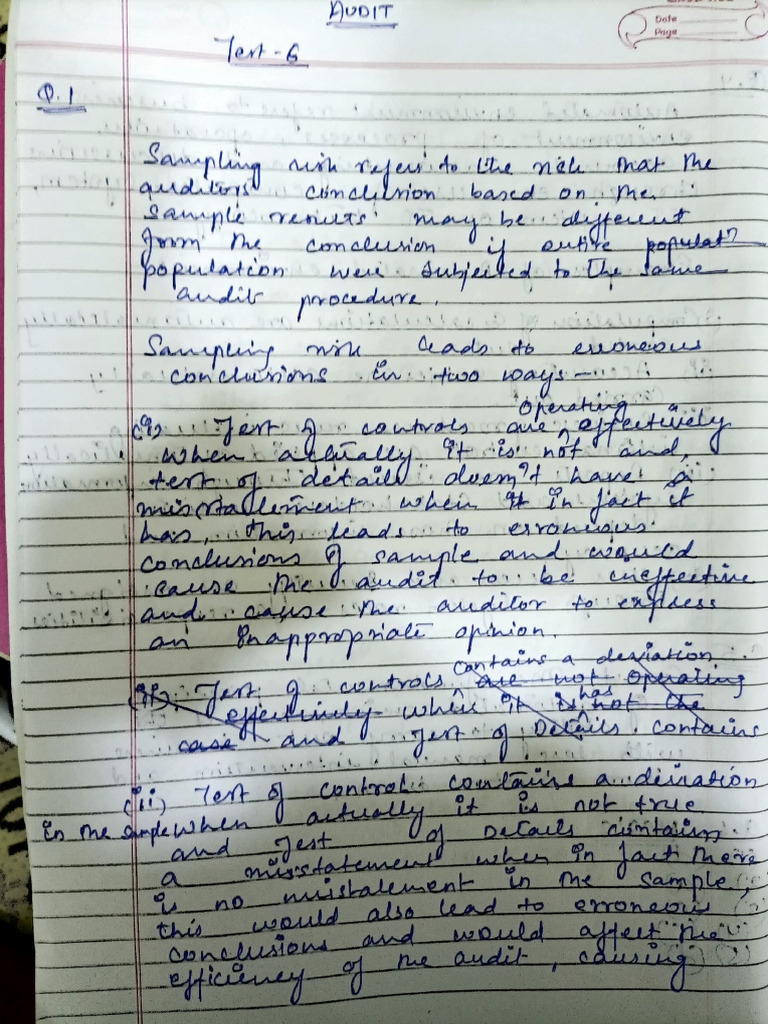 AUDIT
Date
Page
Test - 6
Q.1
Sampling risk refers to the risk that the
auditors' conclusion based on the
sample results may be different
from the conclusion if entire populatn
population were subjected to the same
audit procedure.
Sampling risk leads to erroneous
conclusions in two ways -
(i) Test of controls are operating effectively
when actually it is not and,
test of details doesn't have a
misstatement when it in fact it
has, this leads to erroneous
conclusions of sample and would
cause the audit to be ineffective
and cause the auditor to express
an inappropriate opinion.
(ii) Test of controls contains a deviation are not operating
effectively when it has is not the
case and Test of Details contains
(ii) Test of control contains a deviation
in the sample when actually it is not true
and Test of Details contains
a misstatement when in fact there
is no misstatement in the sample,
this would also lead to erroneous
conclusions and would affect the
efficiency of the audit, causing